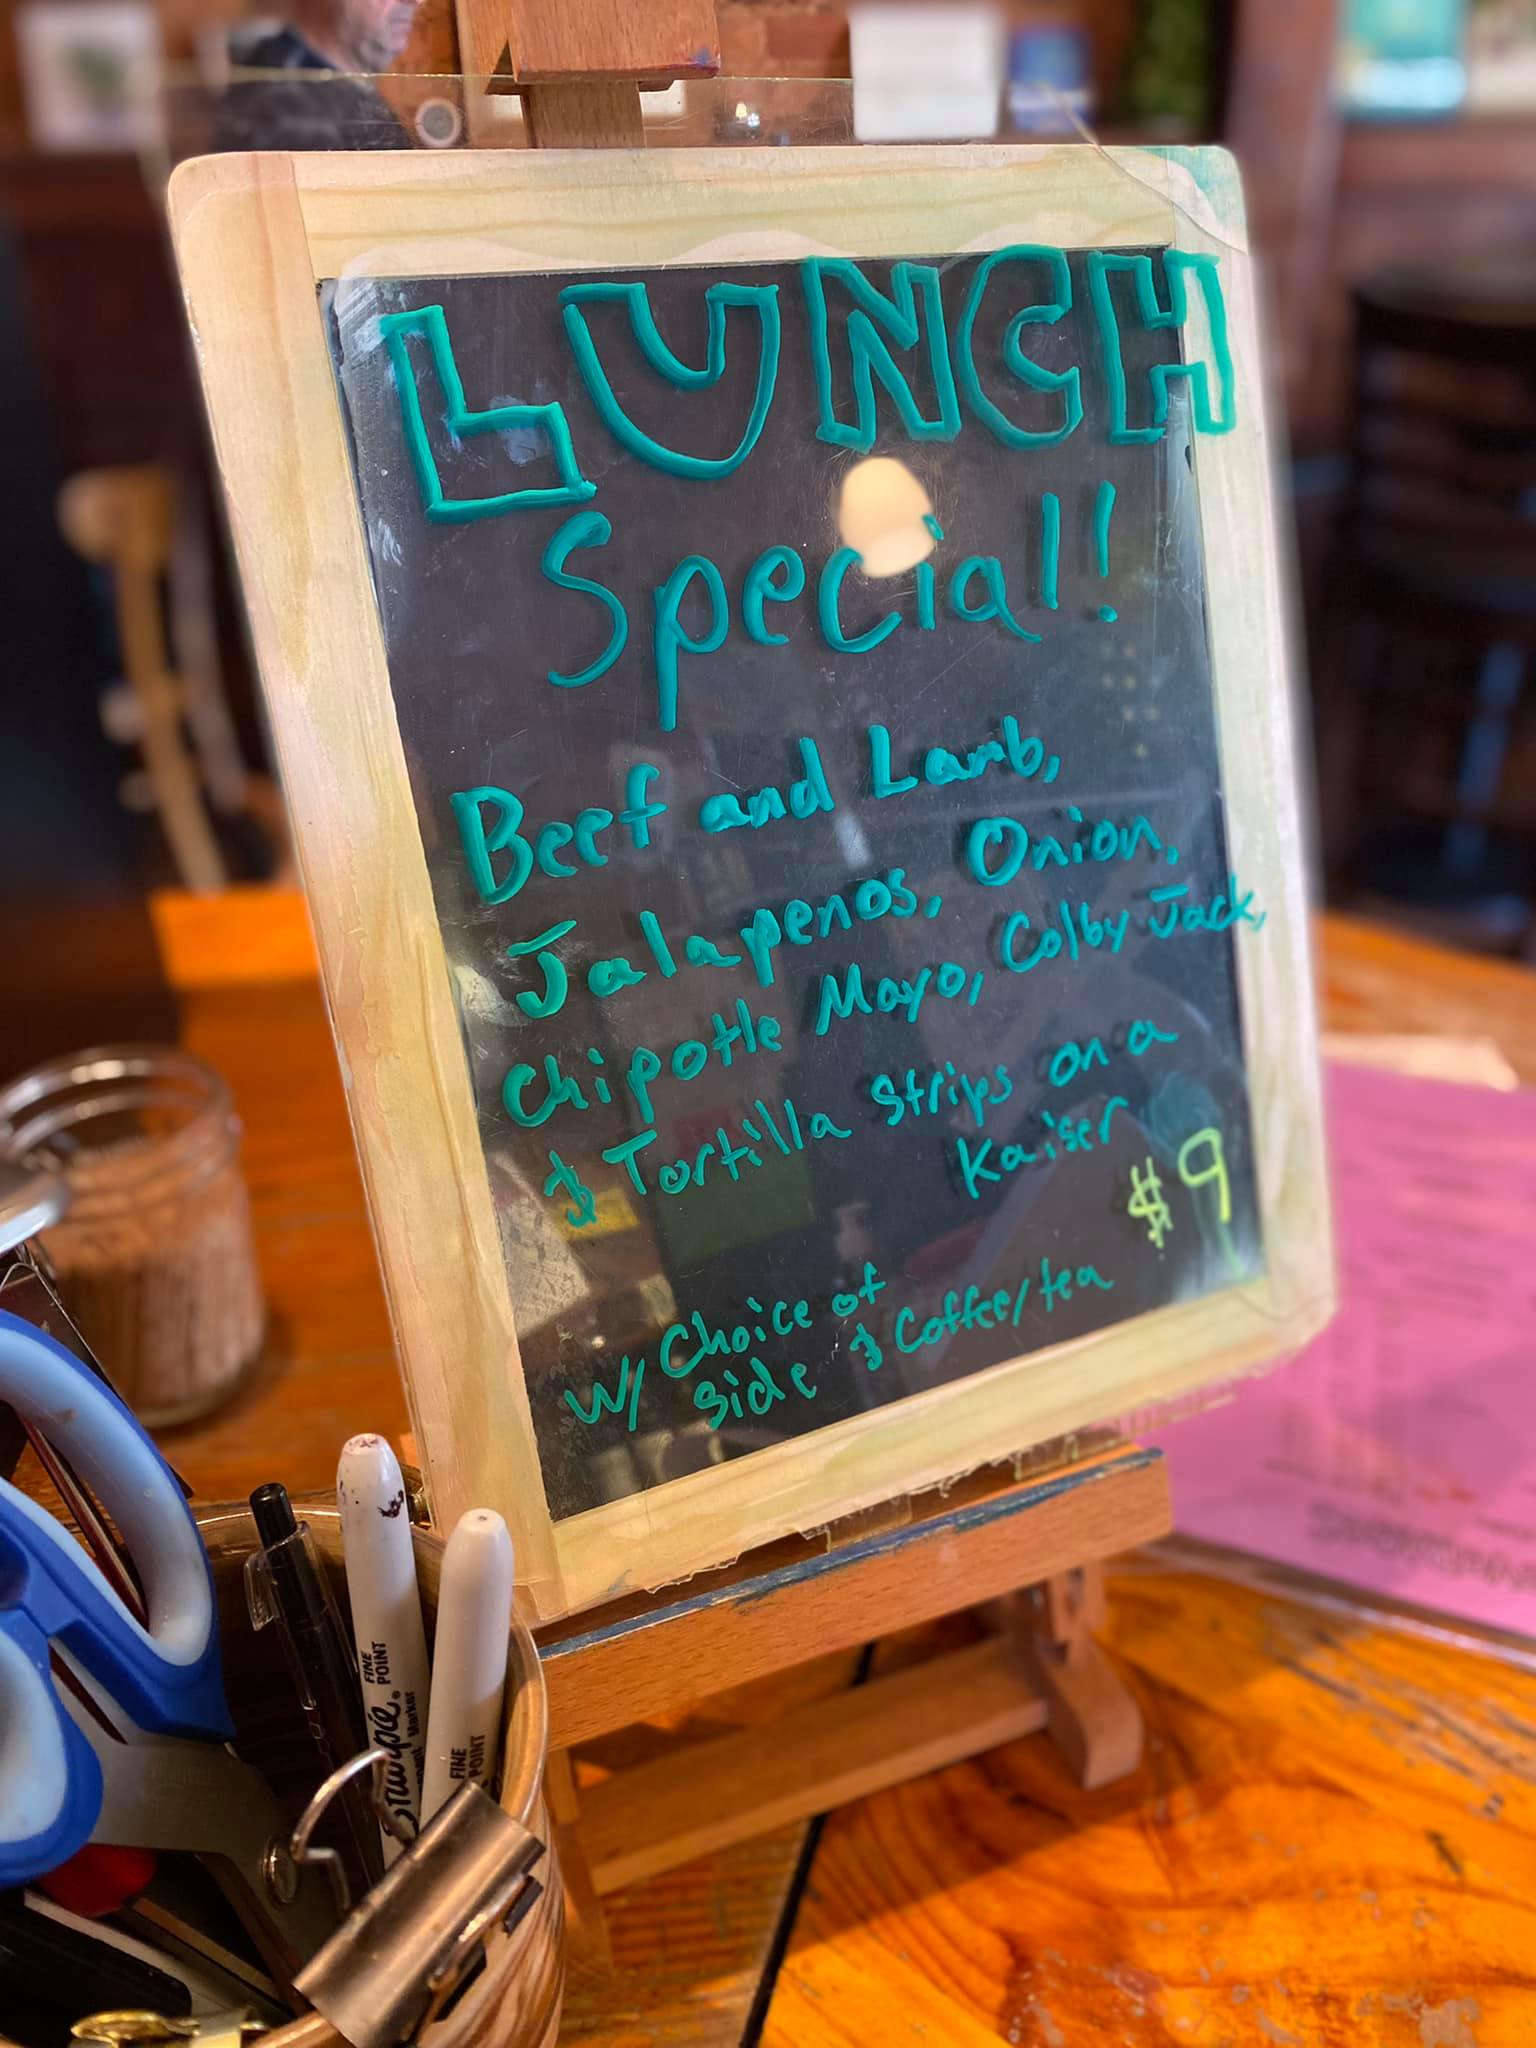 LUNCH
Special!
Beef and Lamb,
Jalapenos, Onion,
Chipotle Mayo, Colby Jack,
& Tortilla Strips on a
Kaiser
$9
w/ Choice of
side & Coffee/tea
FINE
POINT
Sharpie
Marker
FINE
POINT